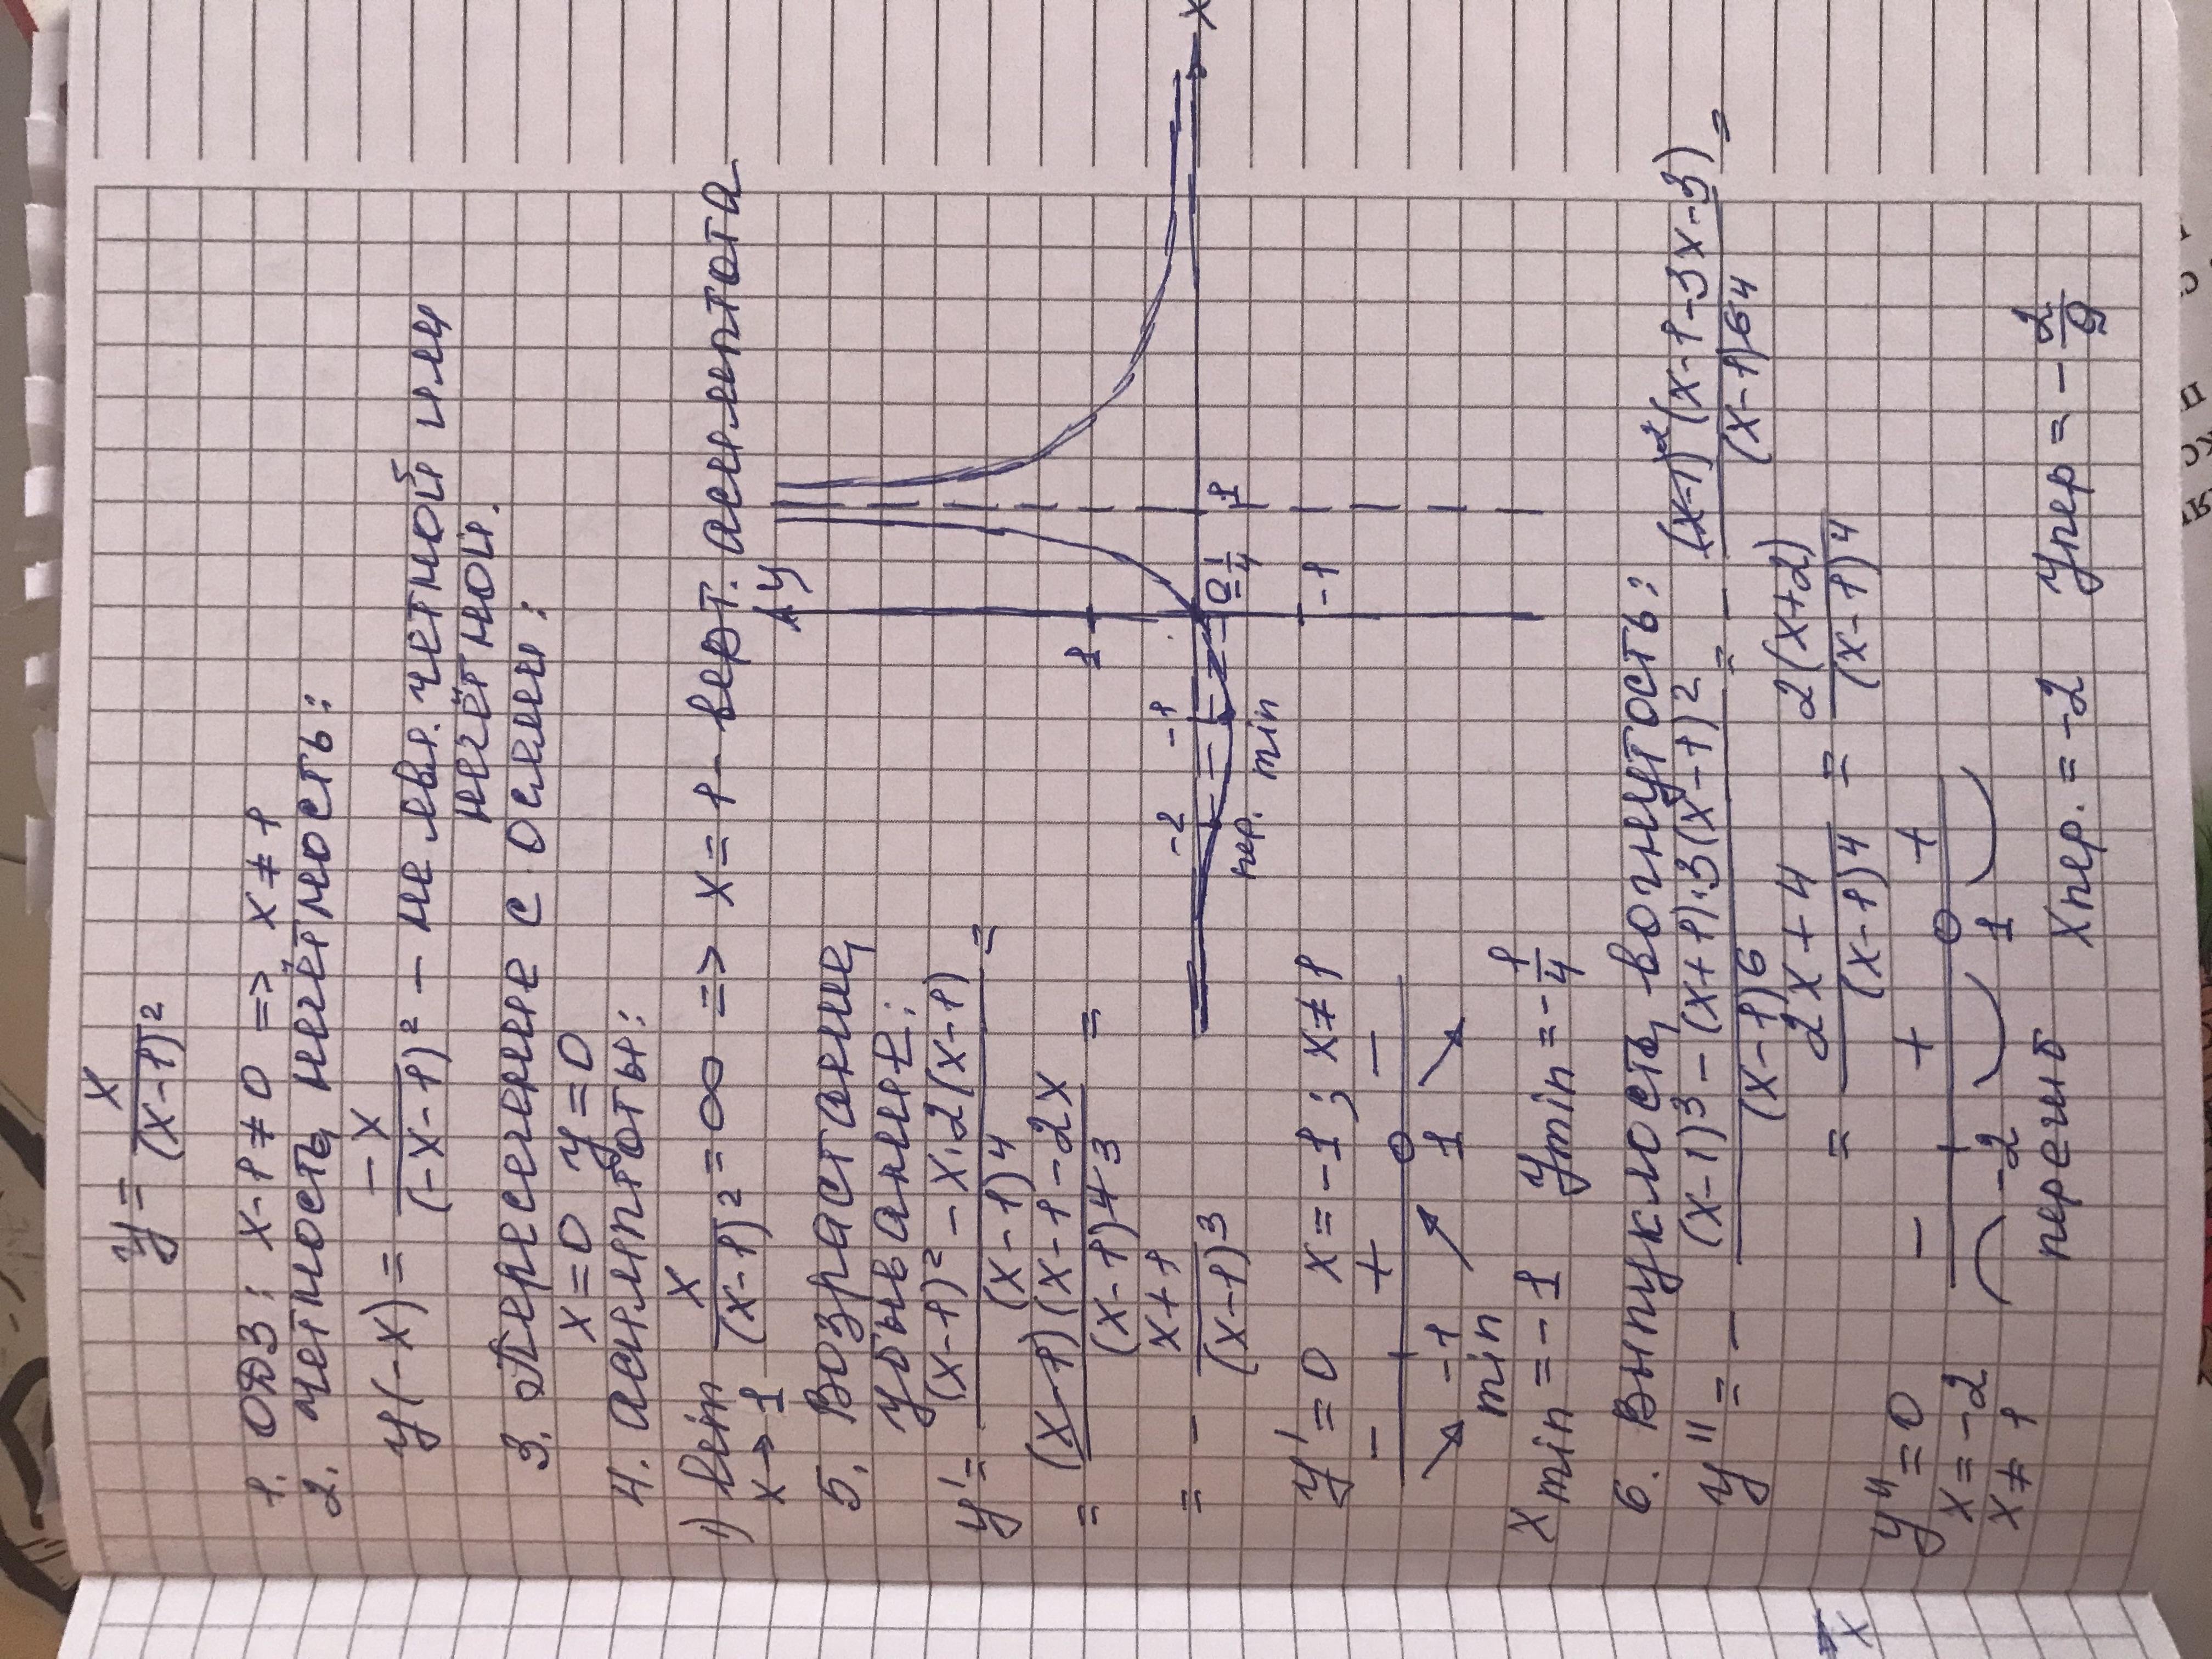 y = x/(x-1)²
1. ОДЗ: x-1≠0 => x≠1
2. четность, нечётность:
y(-x) = -x/(-x-1)² - не явл. четной или
нечётной.
3. Пересечение с осями:
x=0 y=0
4. асимптоты:
1) lim x→1 x/(x-1)² = ∞ => x=1 - верт. асимптота
5. Возрастание,
убывание:
y' = ((x-1)² - x·2(x-1))/(x-1)⁴ =
= (x-1)(x-1-2x)/(x-1)⁴ ³ =
= - (x+1)/(x-1)³
y'=0 x=-1; x≠1
- + -
-1 1
min
x min = -1 y min = -1/4
y
1
-2 -1
0 1
-1/4
пер. min
-1
x
6. Выпуклость, вогнутость:
y'' = - ((x-1)³ - (x+1)·3(x-1)²)/(x-1)⁶ = - (x-1)²(x-1-3x-3)/(x-1)⁶ ⁴ =
= (2x+4)/(x-1)⁴ = 2(x+2)/(x-1)⁴
y''=0
x=-2
x≠1
- + +
-2 1
перегиб
x пер. = -2 y пер = -2/9
x